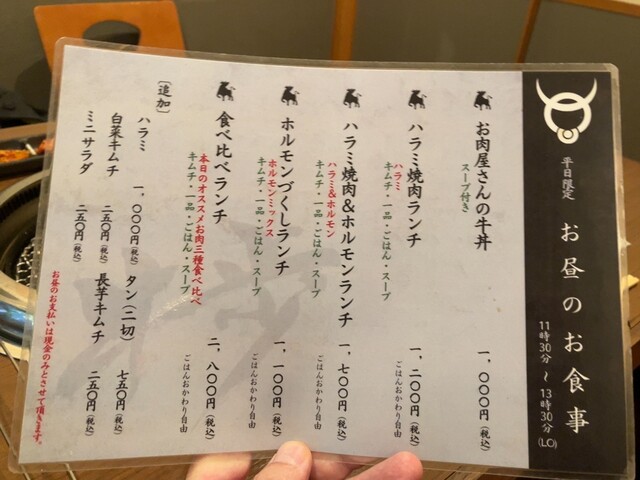 平日限定
お昼のお食事
11時30分～13時30分(LO)
お肉屋さんの牛丼 一、〇〇〇円(税込)
スープ付き
ハラミ焼肉ランチ 一、二〇〇円(税込)
ハラミ
キムチ・一品・ごはん・スープ
ごはんおかわり自由
ハラミ焼肉&ホルモンランチ 一、七〇〇円(税込)
ハラミ&ホルモン
キムチ・一品・ごはん・スープ
ごはんおかわり自由
ホルモンづくしランチ 一、一〇〇円(税込)
ホルモンミックス
キムチ・一品・ごはん・スープ
ごはんおかわり自由
食べ比べランチ 二、八〇〇円(税込)
本日のオススメお肉三種食べ比べ
キムチ・一品・ごはん・スープ
ごはんおかわり自由
〔追加〕
ハラミ 一、〇〇〇円(税込) タン(二切) 七五〇円(税込)
白菜キムチ 二五〇円(税込) 長芋キムチ 二五〇円(税込)
ミニサラダ 二五〇円(税込)
お昼のお支払いは現金のみとさせて頂きます。